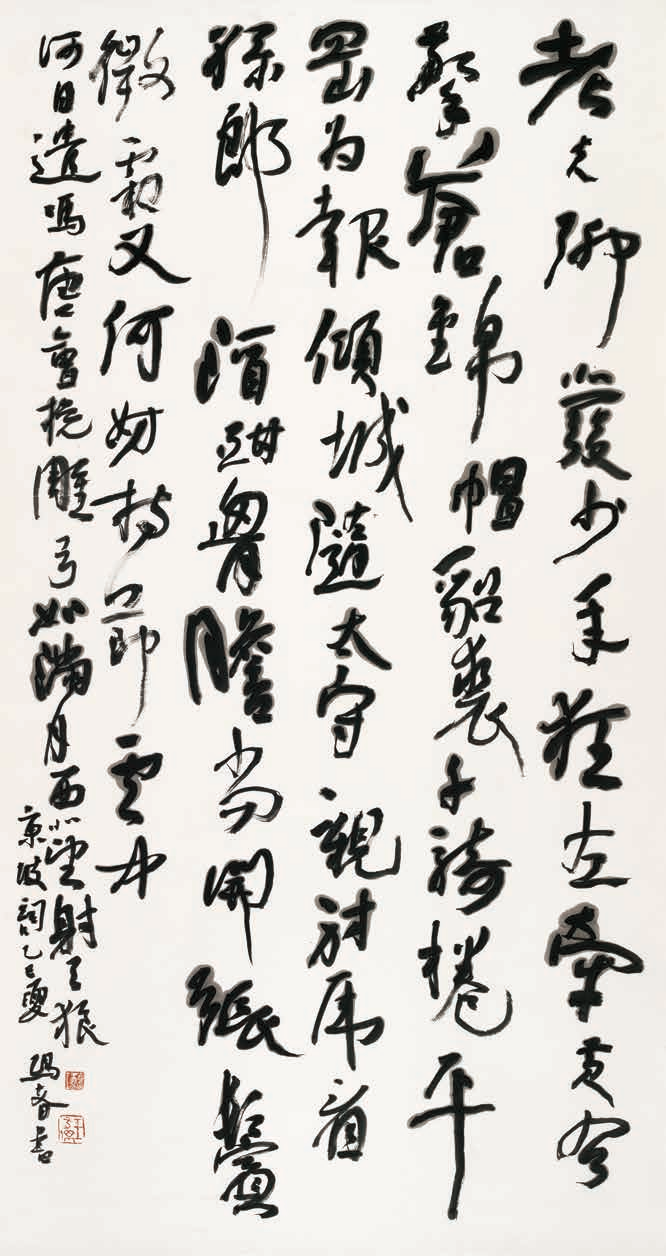 老夫聊發少年狂左牽黃右
擎蒼錦帽貂裘千騎捲平
岡為報傾城隨太守親射虎看
孫郎酒酣胷膽尚開張鬢
微霜又何妨持節雲中
何日遣馮唐會挽雕弓如滿月西北望射天狼
東坡詞乙巳夏書